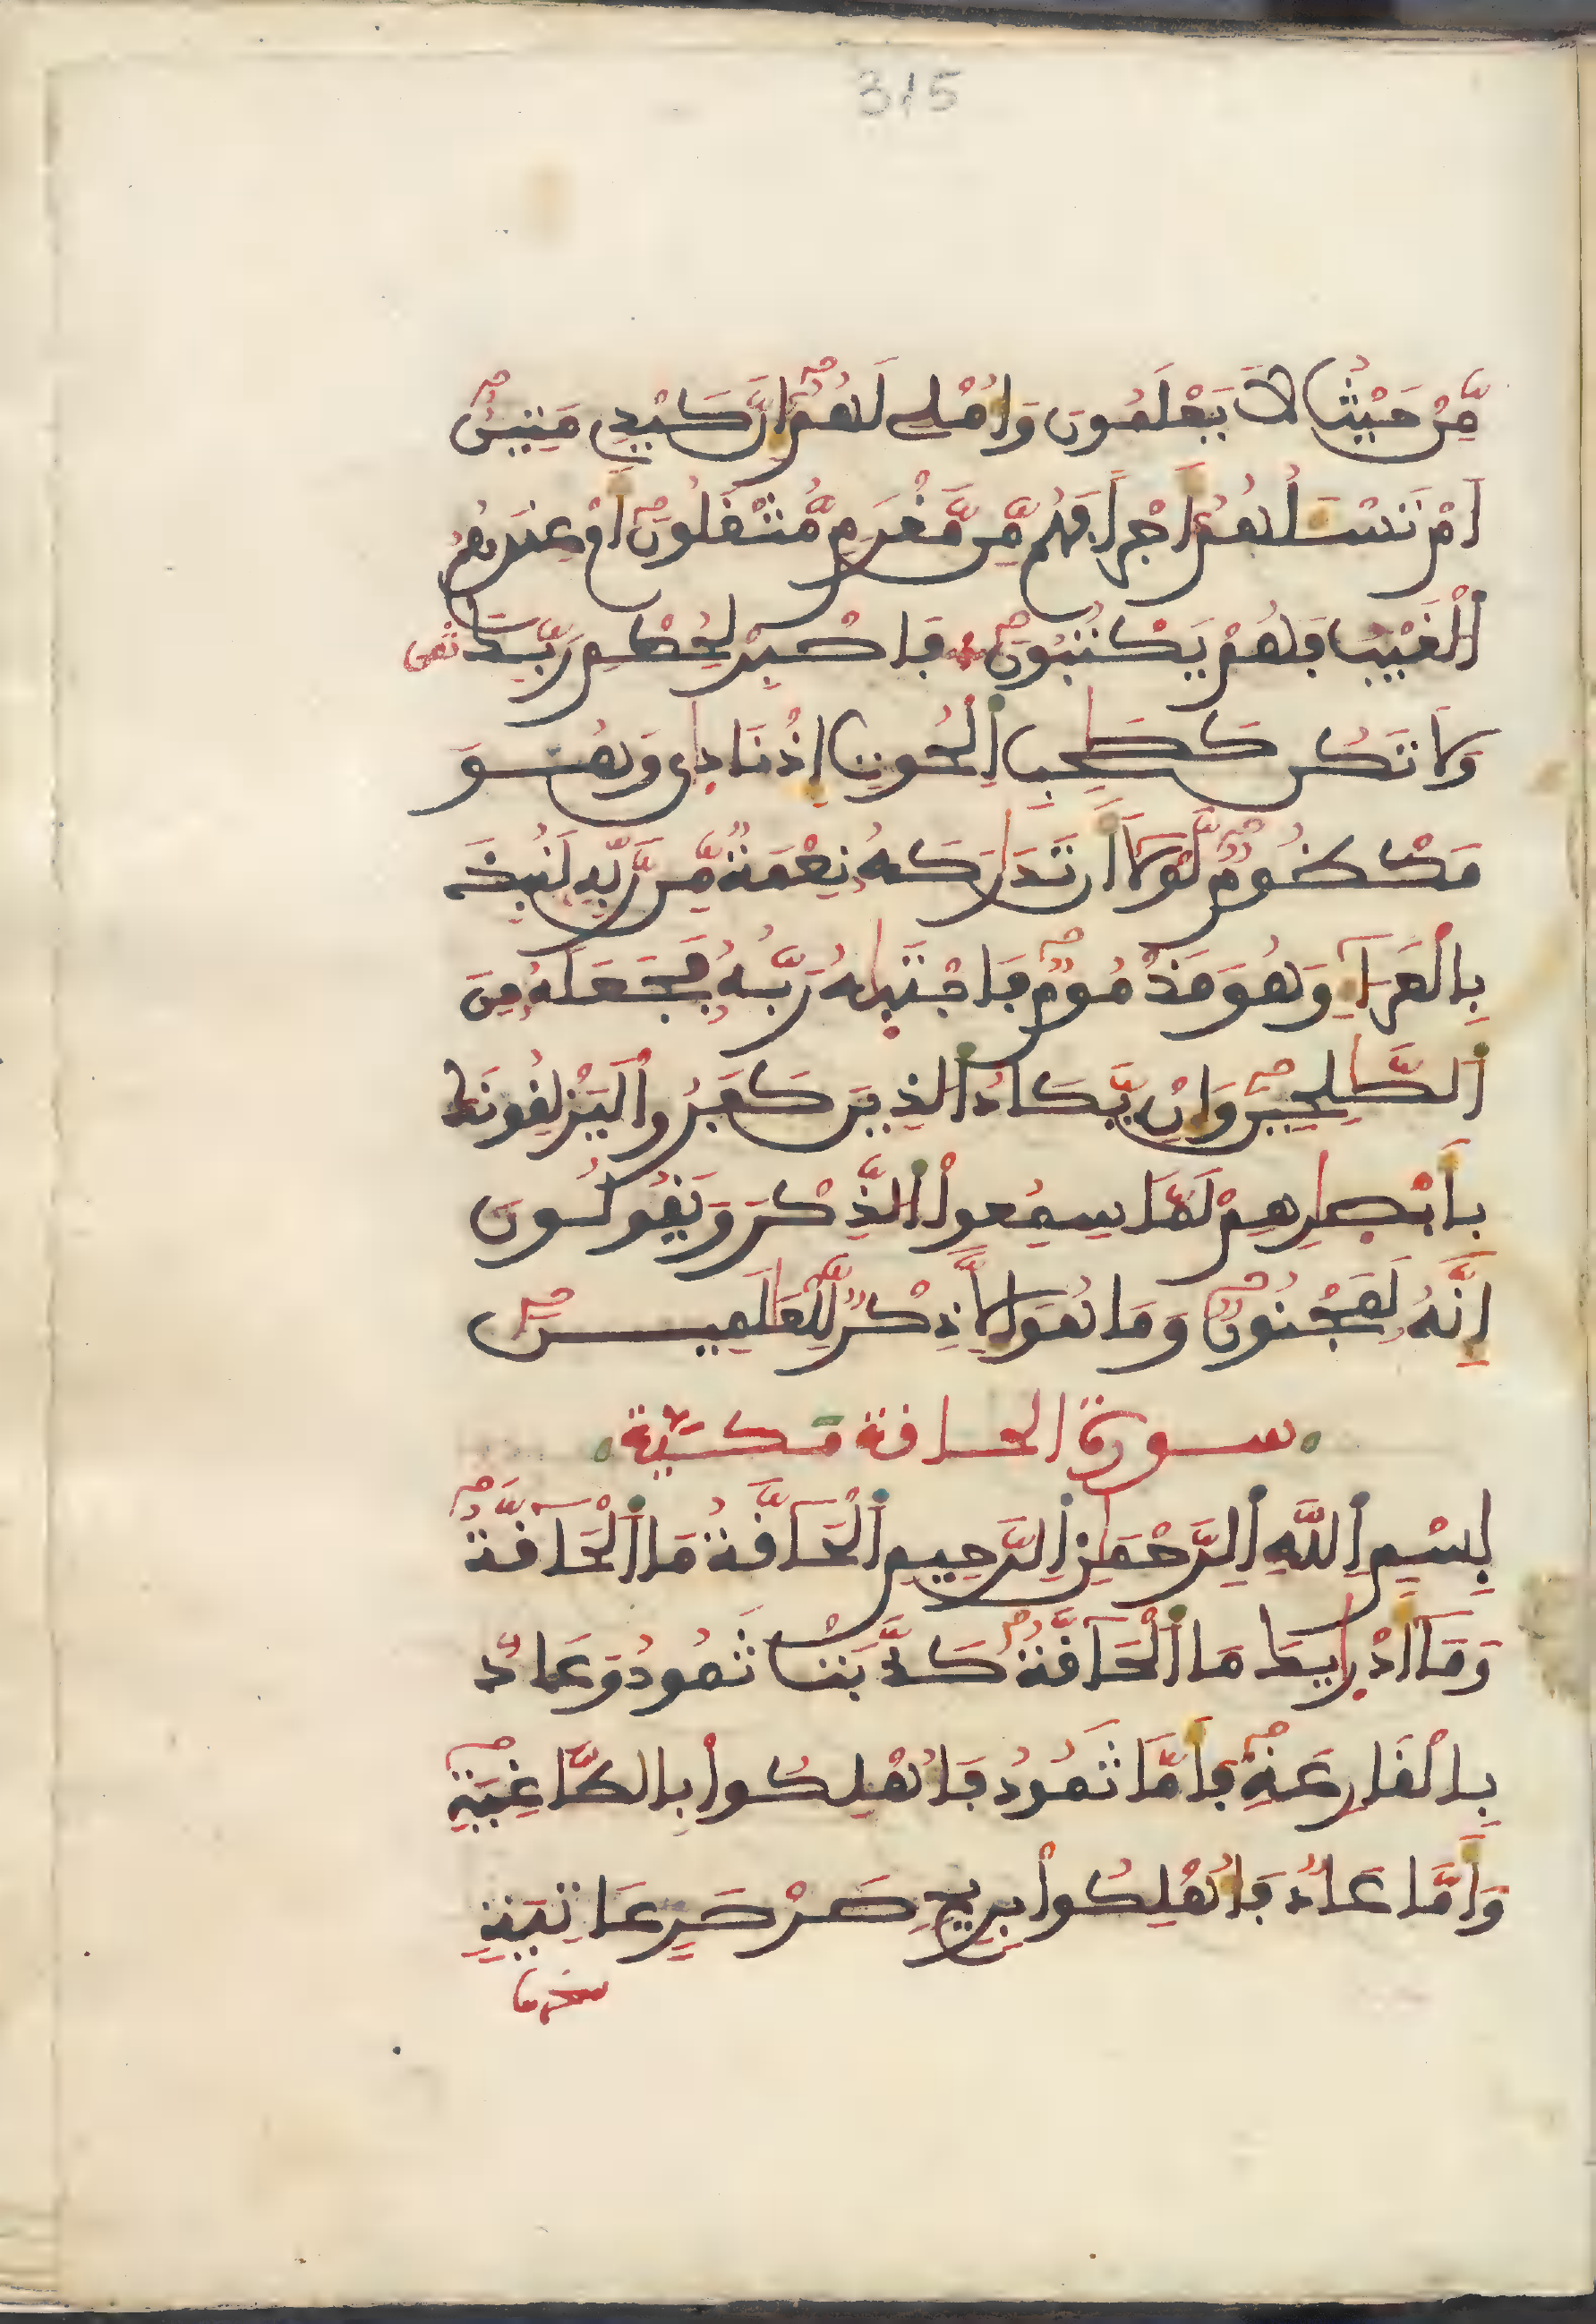 315
مِّنْ حَيْثُ لَا يَعْلَمُونَ وَأُمْلِي لَهُمُ إِنَّ كَيْدِي مَتِينٌ
أَمْ تَسْـَٔلُهُمُ أَجْراً فَهُم مِّن مَّغْرَمٍ مُّثْقَلُونَ أَمْ عِندَهُمُ
اُ۬لْغَيْبُ فَهُمْ يَكْتُبُونَ فَاصْبِرْ لِحُكْمِ رَبِّكَ
وَلَا تَكُن كَصَٰحِبِ اِ۬لْحُوتِ إِذْ نَادَىٰ وَهُوَ
مَكْظُومٌ لَّوْلَا أَن تَدَٰرَكَهُ نِعْمَةٌ مِّن رَّبِّهِ لَنُبِذَ
بِالْعَرَآءِ وَهُوَ مَذْمُومٌ فَاجْتَبَٰهُ رَبُّهُ فَجَعَلَهُ مِنَ
اَ۬لصَّٰلِحِينَ وَإِنْ يَّكَادُ اُ۬لذِينَ كَفَرُواْ لَيَزْلِقُونَكَ
بِأَبْصَٰرِهِمْ لَمَّا سَمِعُواْ اُ۬لذِّكْرَ وَيَقُولُونَ
إِنَّهُ لَمَجْنُونٌ وَمَا هُوَ إِلَّا ذِكْرٌ لِّلْعَٰلَمِينَ
سورة الحاقة مكيّة
بِسْمِ اِ۬للَّهِ اِ۬لرَّحْمَٰنِ اِ۬لرَّحِيمِ اِ۬لْحَآقَّةُ مَا اَ۬لْحَآقَّةُ
وَمَآ أَدْرَىٰكَ مَا اَ۬لْحَآقَّةُ كَذَّبَتْ ثَمُودُ وَعَادٌ
بِالْقَارِعَةِ فَأَمَّا ثَمُودُ فَأُهْلِكُواْ بِالطَّاغِيَةِ
وَأَمَّا عَادٌ فَأُهْلِكُواْ بِرِيحٍ صَرْصَرٍ عَاتِيَةٍ
سخرها